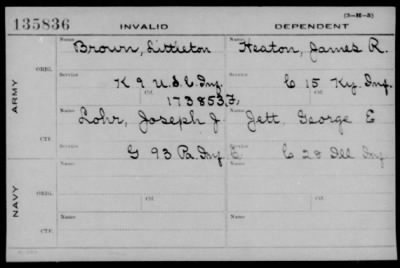 135836 INVALID DEPENDENT (3-H-5)
Name Brown, Littleton Name Heaton, James R.
ARMY ORIG. Service K 9 U.S.C. Inf. Service C 15 Ky. Inf.
Ctf. 173853, F, Ctf.
Name Lohr, Joseph J. Name Jett George E
CTF. Service G 93 Pa. Inf Service C 28 Ill Inf
NAVY ORIG. Name Name
Service Ctf. Service Ctf.
CTF. Name Name